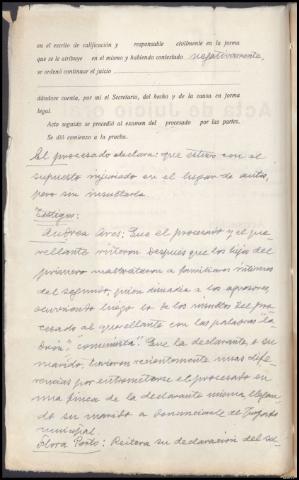 en el escrito de calificación y responsable civilmente en la forma
que se le atribuye en el mismo y habiendo contestado negativamente,
se ordenó continuar el juicio
dándose cuenta, por mí el Secretario, del hecho y de la causa en forma
legal.
Acto seguido se procedió al examen del procesado por las partes.
Se dió comienzo a la prueba.
El procesado declara: que estuvo con el
supuesto injuriado en el lugar de autos,
pero sin insultarle.
Testigos:
Andrea Ares: Que el procesado y el que-
rellante riñeron después que los hijos del
primero maltrataron a familiares
del segundo, quien a los agresores,
ocurriendo luego lo de los insultos del pro-
cesado al querellante con las palabras "la-
drón", "comunista". Que la declarante, o su
marido, tuvieron recientemente unas dife-
rencias por entrometerse el procesado en
una finca de la declarante misma llegan-
do su marido a denunciarle
municipal.
Flora Porto: Reitera su declaración del su-